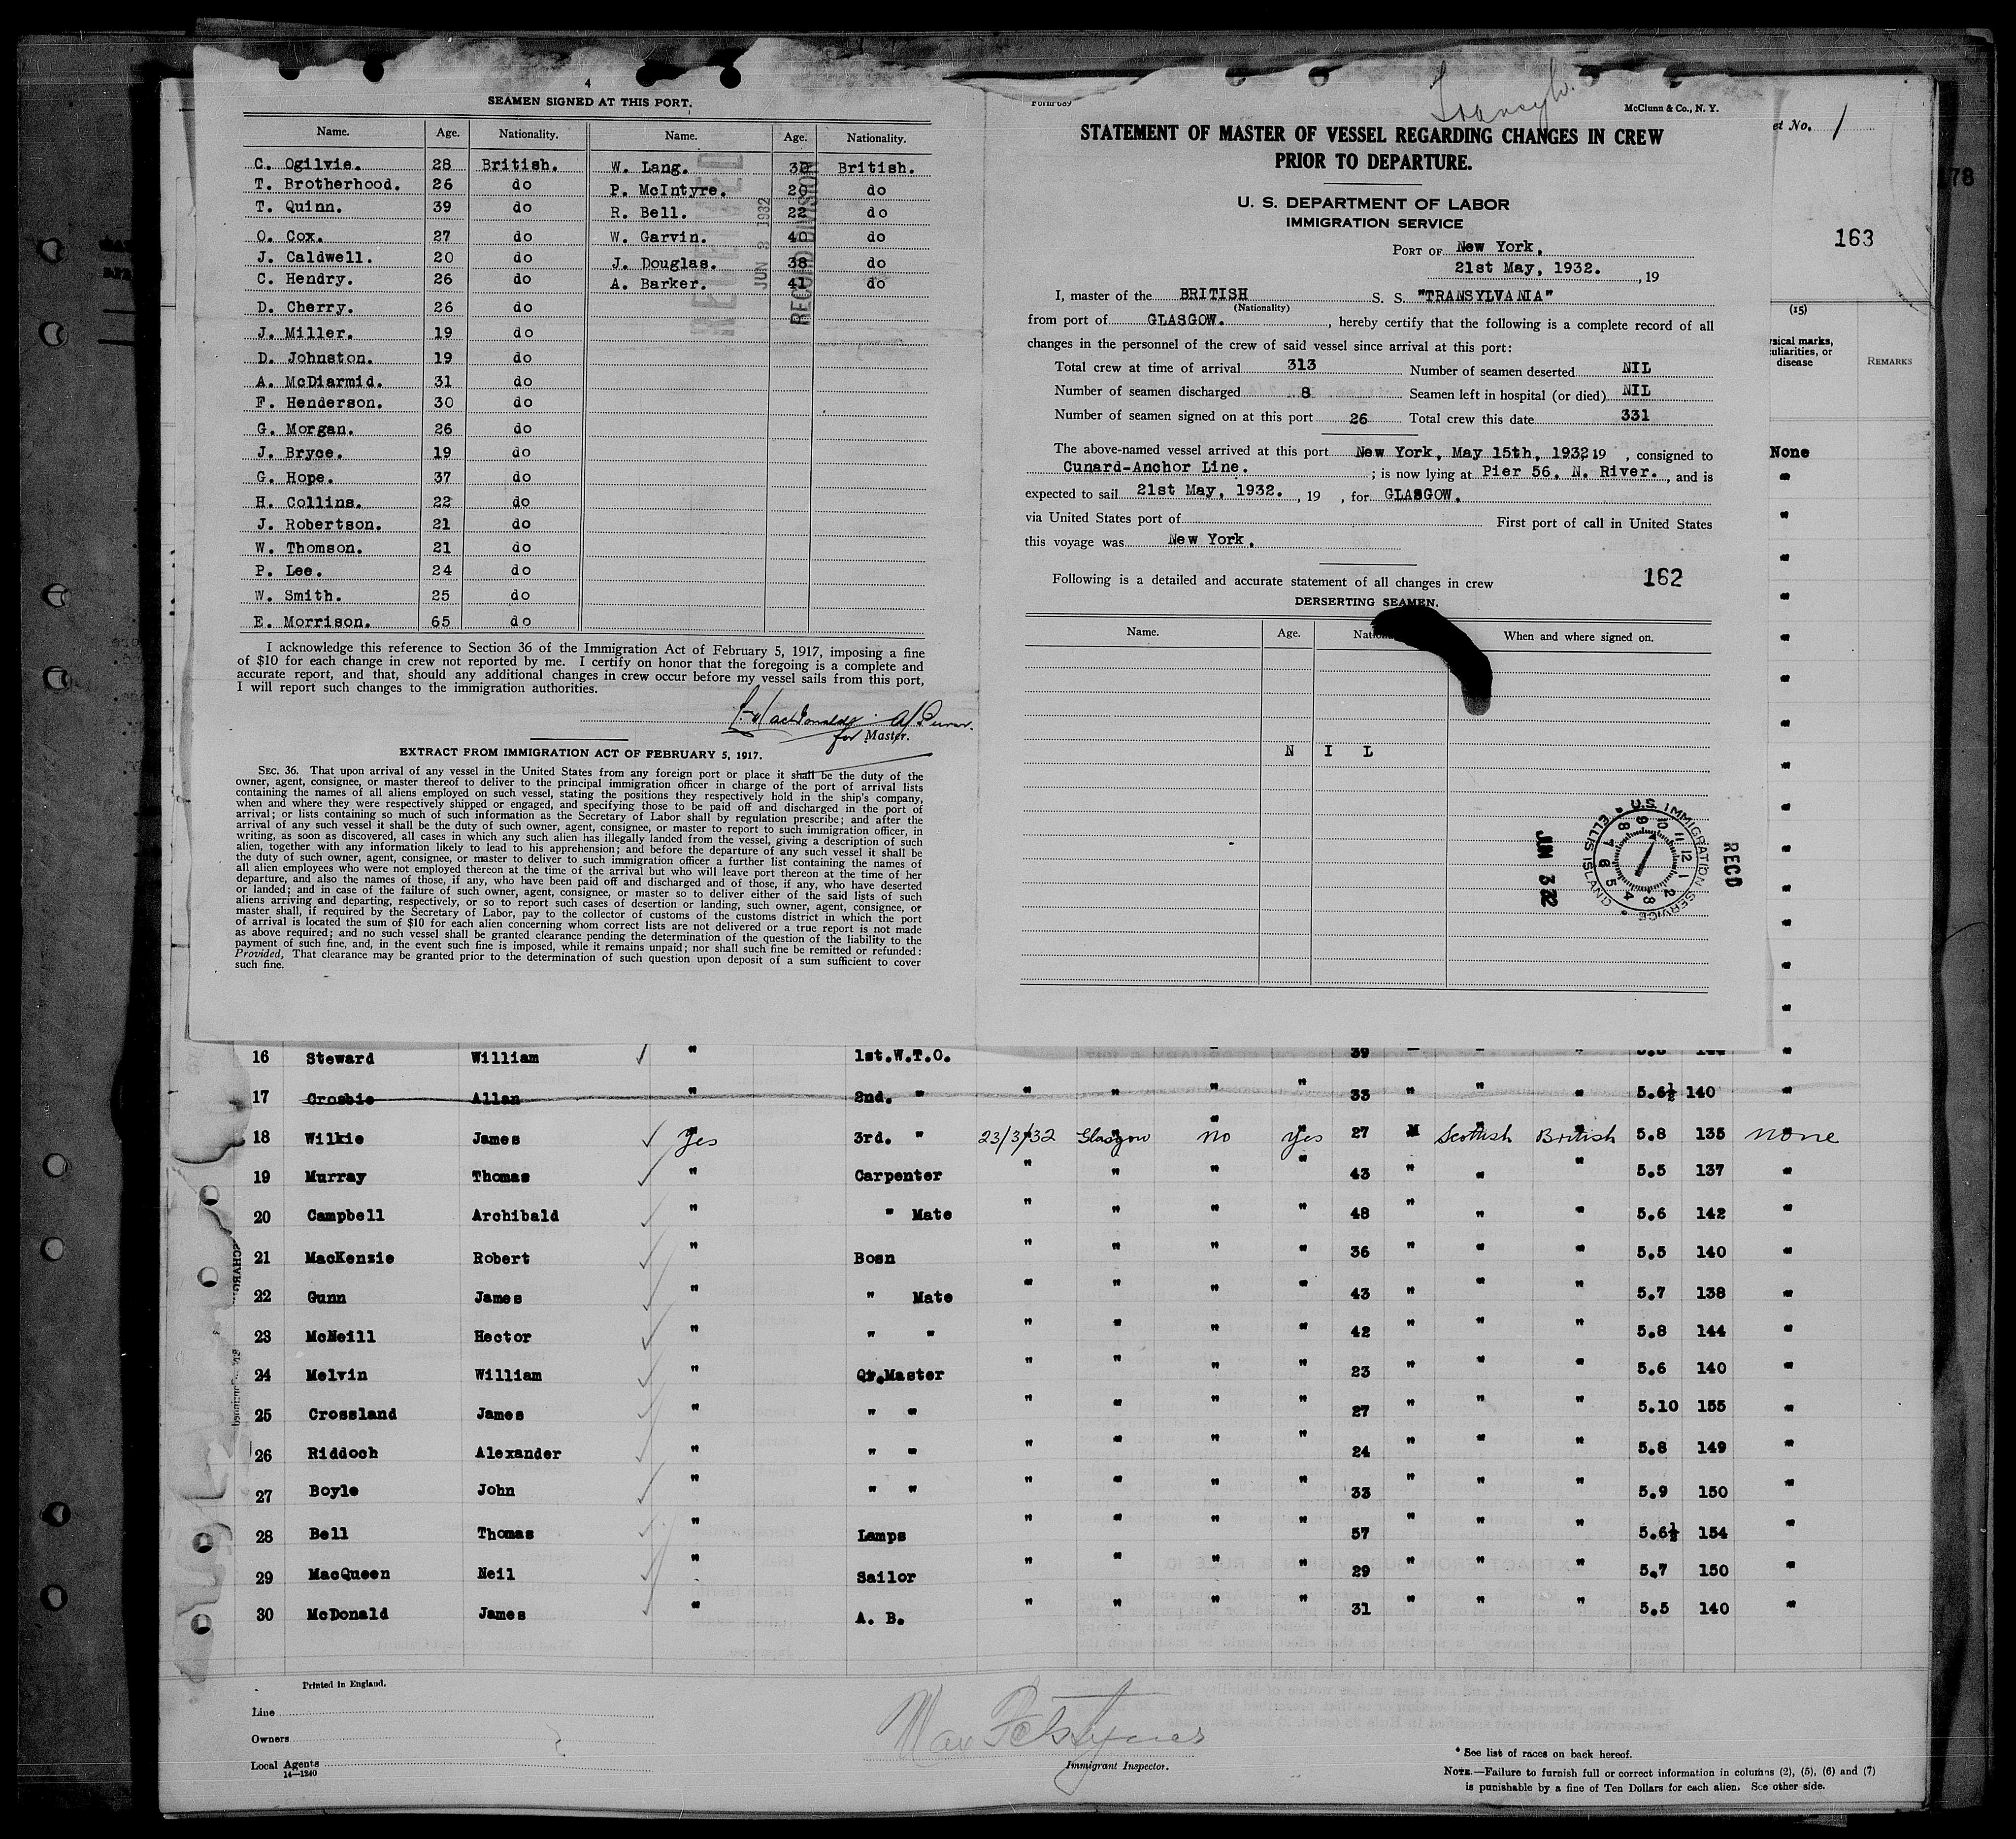 4
SEAMEN SIGNED AT THIS PORT.
Name. Age. Nationality. Name. Age. Nationality.
C. Ogilvie. 28 British. W. Lang. 30 British.
T. Brotherhood. 26 do P. McIntyre. 20 do
T. Quinn. 39 do R. Bell. 22 do
O. Cox. 27 do W. Garvin. 40 do
J. Caldwell. 20 do J. Douglas. 38 do
C. Hendry. 26 do A. Barker. 41 do
D. Cherry. 26 do
J. Miller. 19 do
D. Johnston. 19 do
A. McDiarmid. 31 do
F. Henderson. 30 do
G. Morgan. 26 do
J. Bryce. 19 do
G. Hope. 37 do
H. Collins. 22 do
J. Robertson. 21 do
W. Thomson. 21 do
P. Lee. 24 do
W. Smith. 25 do
E. Morrison. 65 do
JUN 3 1932
RECORD DIVISION
I acknowledge this reference to Section 36 of the Immigration Act of February 5, 1917, imposing a fine
of $10 for each change in crew not reported by me. I certify on honor that the foregoing is a complete and
accurate report, and that, should any additional changes in crew occur before my vessel sails from this port,
I will report such changes to the immigration authorities.
MacDonald A/Purser.
for Master.
EXTRACT FROM IMMIGRATION ACT OF FEBRUARY 5, 1917.
SEC. 36. That upon arrival of any vessel in the United States from any foreign port or place it shall be the duty of the
owner, agent, consignee, or master thereof to deliver to the principal immigration officer in charge of the port of arrival lists
containing the names of all aliens employed on such vessel, stating the positions they respectively hold in the ship's company,
when and where they were respectively shipped or engaged, and specifying those to be paid off and discharged in the port of
arrival; or lists containing so much of such information as the Secretary of Labor shall by regulation prescribe; and after the
arrival of any such vessel it shall be the duty of such owner, agent, consignee, or master to report to such immigration officer, in
writing, as soon as discovered, all cases in which any such alien has illegally landed from the vessel, giving a description of such
alien, together with any information likely to lead to his apprehension; and before the departure of any such vessel it shall be
the duty of such owner, agent, consignee, or master to deliver to such immigration officer a further list containing the names of
all alien employees who were not employed thereon at the time of the arrival but who will leave port thereon at the time of her
departure, and also the names of those, if any, who have been paid off and discharged and of those, if any, who have deserted
or landed; and in case of the failure of such owner, agent, consignee, or master so to deliver either of the said lists of such
aliens arriving and departing, respectively, or so to report such cases of desertion or landing, such owner, agent, consignee, or
master shall, if required by the Secretary of Labor, pay to the collector of customs of the customs district in which the port
of arrival is located the sum of $10 for each alien concerning whom correct lists are not delivered or a true report is not made
as above required; and no such vessel shall be granted clearance pending the determination of the question of the liability to the
payment of such fine, and, in the event such fine is imposed, while it remains unpaid; nor shall such fine be remitted or refunded:
Provided, That clearance may be granted prior to the determination of such question upon deposit of a sum sufficient to cover
such fine.
Form 689
McClunn & Co., N. Y.
STATEMENT OF MASTER OF VESSEL REGARDING CHANGES IN CREW
PRIOR TO DEPARTURE.
U. S. DEPARTMENT OF LABOR
IMMIGRATION SERVICE
PORT OF New York.
21st May, 1932. , 19
I, master of the BRITISH S. S. "TRANSYLVANIA"
(Nationality)
from port of GLASGOW. , hereby certify that the following is a complete record of all
changes in the personnel of the crew of said vessel since arrival at this port:
Total crew at time of arrival 313 Number of seamen deserted NIL
Number of seamen discharged 8 Seamen left in hospital (or died) NIL
Number of seamen signed on at this port 26 Total crew this date 331
The above-named vessel arrived at this port New York, May 15th, 1932 19 , consigned to
Cunard-Anchor Line. ; is now lying at Pier 56, N. River. , and is
expected to sail 21st May, 1932. , 19 , for GLASGOW.
via United States port of First port of call in United States
this voyage was New York.
Following is a detailed and accurate statement of all changes in crew 162
DERSERTING SEAMEN.
Name. Age. When and where signed on.
N I L
JUN 3 32
U.S. IMMIGRATION SERVICE ELLIS ISLAND
12 1 2 3 4 5 6 7 8 9 10 11
RECD
et No. 1
78
163
(15)
ysical marks,
culiarities, or
disease
REMARKS
None
"
"
"
"
"
"
"
"
"
"
"
"
"
16 Steward William ✓ " 1st.W.T.O. 39 "
17 Crosbie Allan " 2nd. " " " " " 33 " " " 5.6½ 140 "
18 Wilkie James ✓ Yes 3rd. " 23/3/32 Glasgow no Yes 27 M Scottish British 5.8 135 none
19 Murray Thomas ✓ " Carpenter " " " " 43 " " " 5.5 137 "
20 Campbell Archibald ✓ " " Mate " " " " 48 " " " 5.6 142 "
21 MacKenzie Robert ✓ " Bosn " " " " 36 " " " 5.5 140 "
22 Gunn James ✓ " " Mate " " " " 43 " " " 5.7 138 "
23 McNeill Hector ✓ " " " " " " " 42 " " " 5.8 144 "
24 Melvin William ✓ " Qr.Master " " " " 23 " " " 5.6 140 "
25 Crossland James ✓ " " " " " " " 27 " " " 5.10 155 "
26 Riddoch Alexander ✓ " " " " " " " 24 " " " 5.8 149 "
27 Boyle John ✓ " " " " " " " 33 " " " 5.9 150 "
28 Bell Thomas ✓ " Lamps " " " " 57 " " " 5.6½ 154 "
29 MacQueen Neil ✓ " Sailor " " " " 29 " " " 5.7 150 "
30 McDonald James ✓ " A. B. " " " " 31 " " " 5.5 140 "
Printed in England.
Line
Owners
Local Agents
14—1240
Immigrant Inspector.
* See list of races on back hereof.
NOTE.—Failure to furnish full or correct information in columns (2), (5), (6) and (7)
is punishable by a fine of Ten Dollars for each alien. See other side.